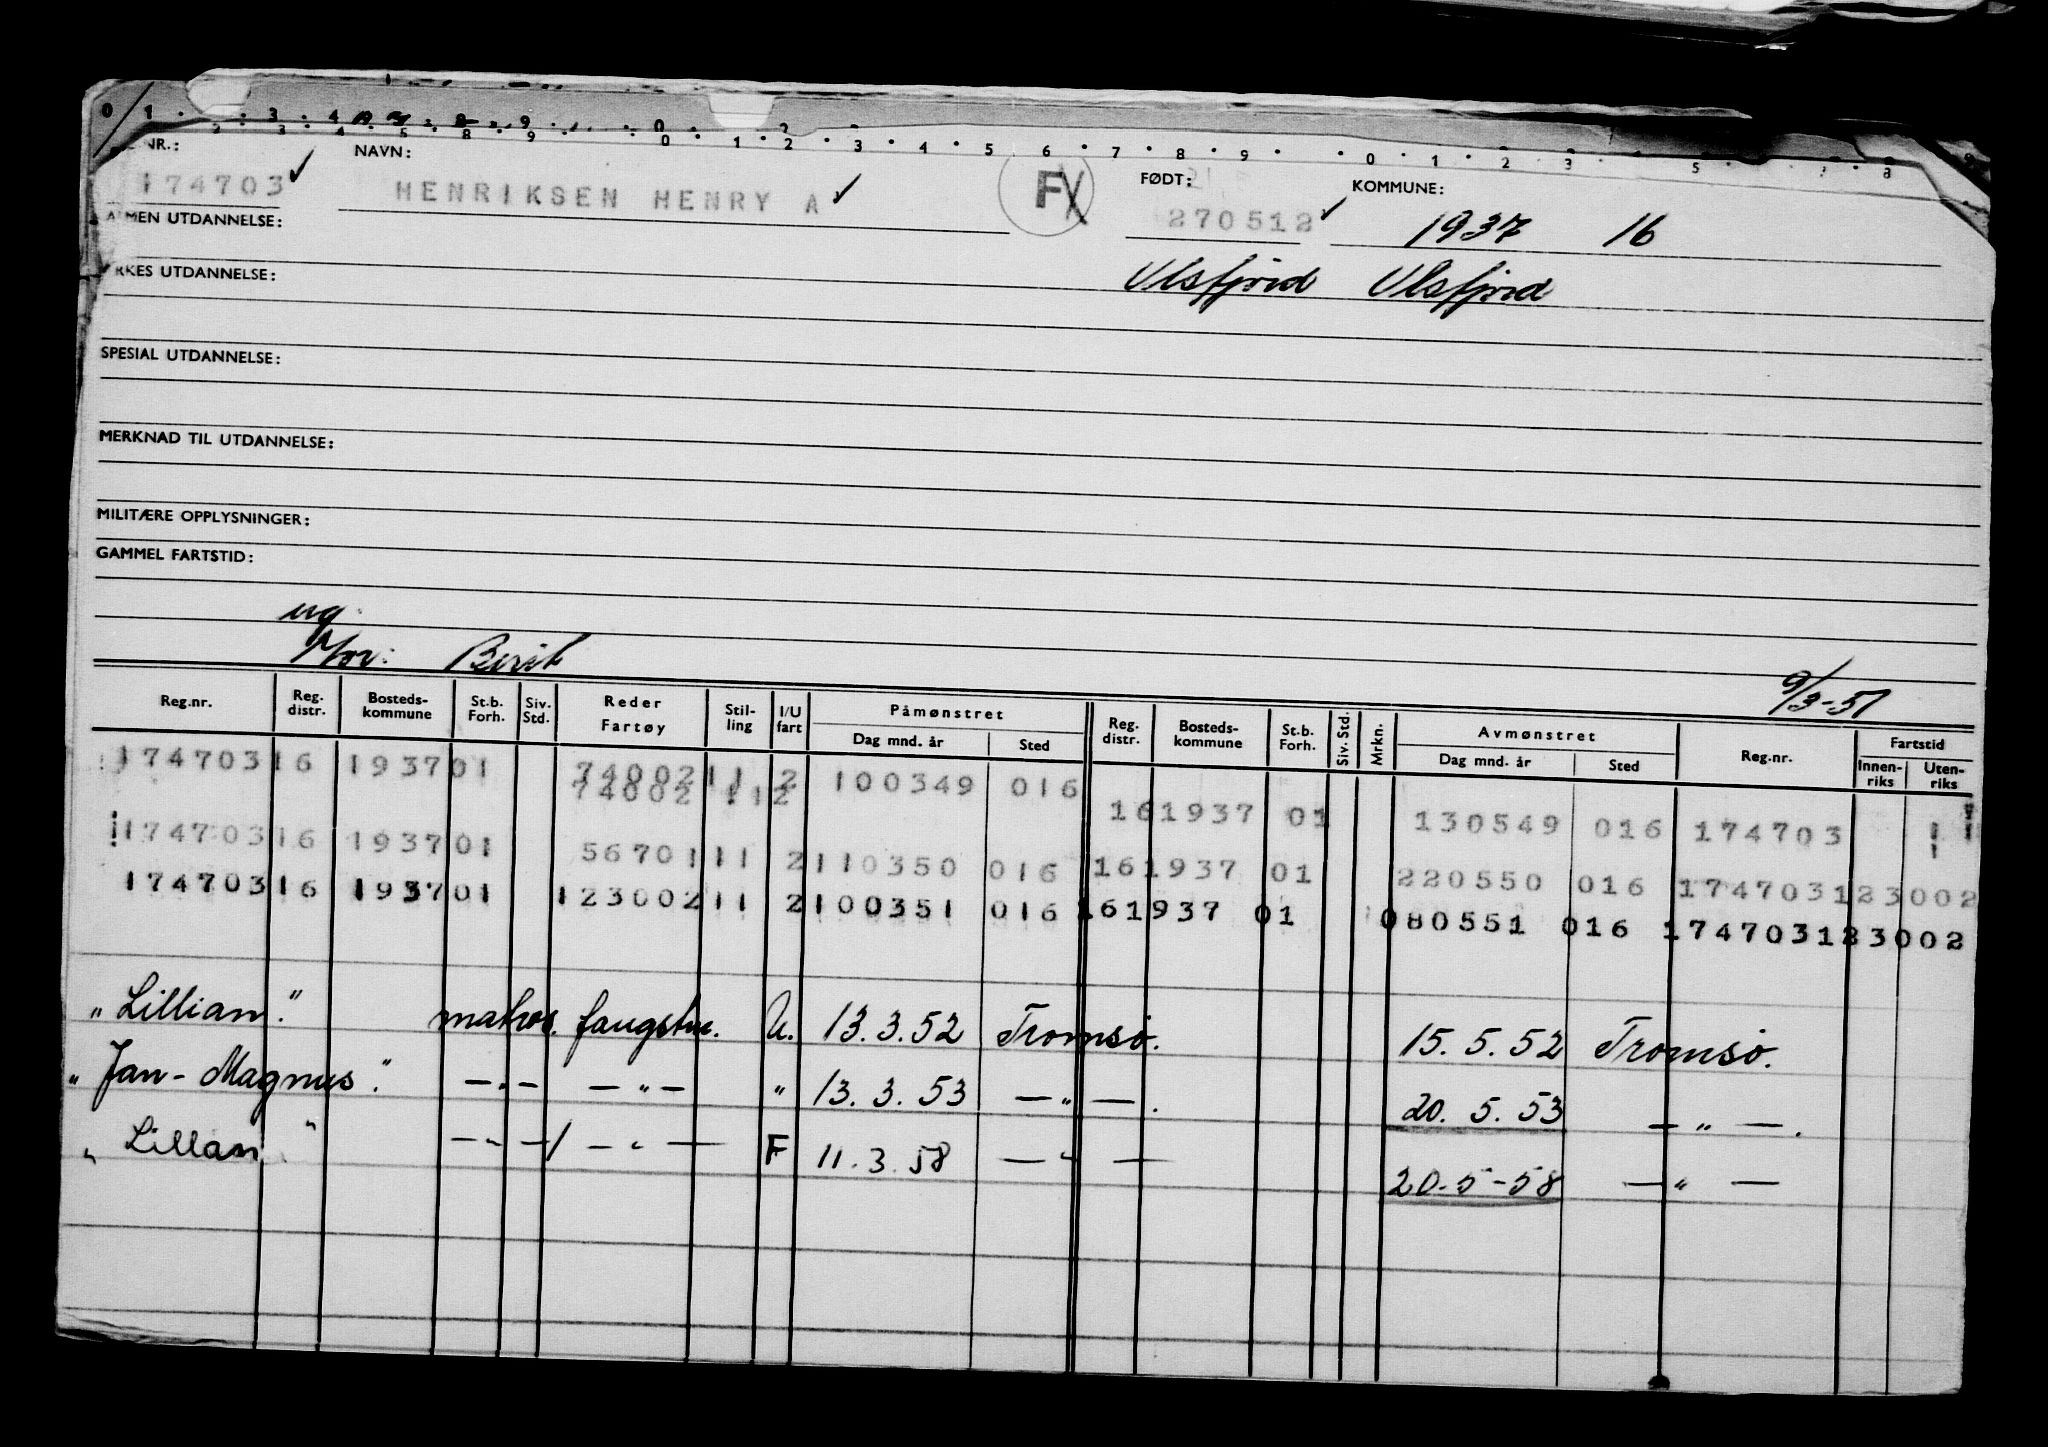 NR.: NAVN: FØDT: KOMMUNE:
174703 HENRIKSEN HENRY A F 270512 1937 16
MEN UTDANNELSE:
RKES UTDANNELSE: Ulsfjord Ulsfjord
SPESIAL UTDANNELSE:
MERKNAD TIL UTDANNELSE:
MILITÆRE OPPLYSNINGER:
GAMMEL FARTSTID:
ug.
Mor: Berit 9/3-51
Reg.nr. Reg. distr. Bosteds-kommune St.b. Forh. Siv. Std. Reder Fartøy Stil-ling I/U fart Påmønstret Dag mnd. år Sted Reg. distr. Bosteds-kommune St.b. Forh. Siv. Std. Mrkn. Avmønstret Dag mnd. år Sted Reg.nr. Fartstid Innen-riks Uten-riks
174703 16 1937 01 74002 11 2 100349 016 16 1937 01 130549 016 174703
74002 11 2
174703 16 1937 01 56701 11 2 110350 016 16 1937 01 220550 016 174703 123002
174703 16 1937 01 123002 11 2 100351 016 16 1937 01 080551 016 174703 123002
"Lillian." matros. fangstm. U. 13.3.52 Tromsø. 15.5.52 Tromsø.
"Jan-Magnus". — " — — " — " 13.3.53 — " — . 20.5.53 — " — .
"Lillian" — " — / — " — F 11.3.58 — " — 20-5-58 — " —